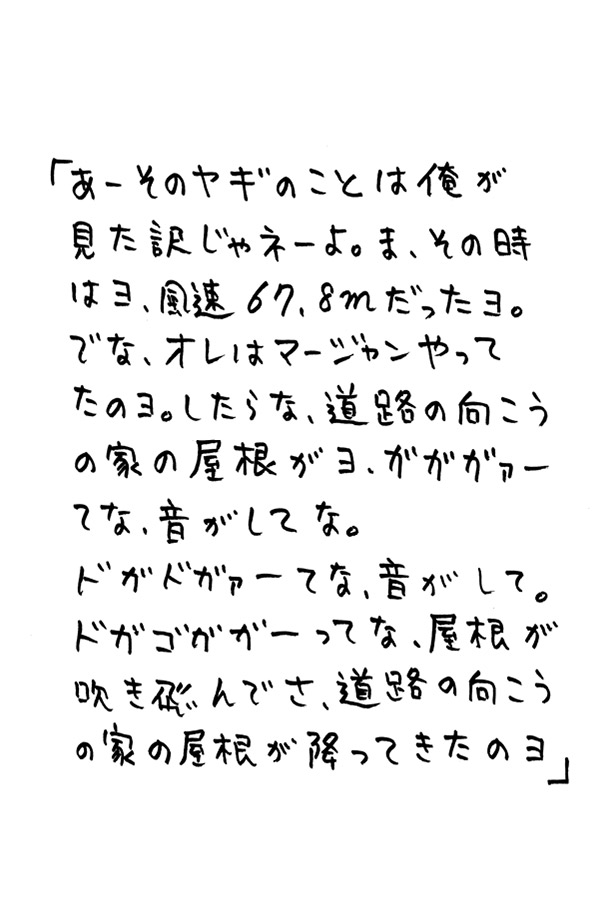 「あーそのヤギのことは俺が
見た訳じゃネーよ。ま、その時
はヨ、風速67.8mだったヨ。
でな、オレはマージャンやって
たのヨ。したらな、道路の向こう
の家の屋根がヨ、ガガガァー
てな、音がしてな。
ドガドガァーてな、音がして。
ドガゴガガーってな、屋根が
吹き飛んでさ、道路の向こう
の家の屋根が降ってきたのヨ」